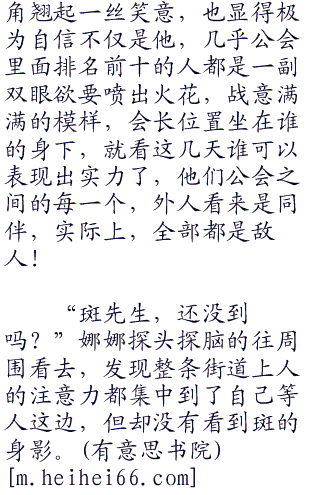 角翘起一丝笑意，也显得极
为自信不仅是他，几乎公会
里面排名前十的人都是一副
双眼欲要喷出火花，战意满
满的模样，会长位置坐在谁
的身下，就看这几天谁可以
表现出实力了，他们公会之
间的每一个，外人看来是同
伴，实际上，全部都是敌
人！
“斑先生，还没到
吗？”娜娜探头探脑的往周
围看去，发现整条街道上人
的注意力都集中到了自己等
人这边，但却没有看到斑的
身影。(有意思书院)
[m.heihei66.com]